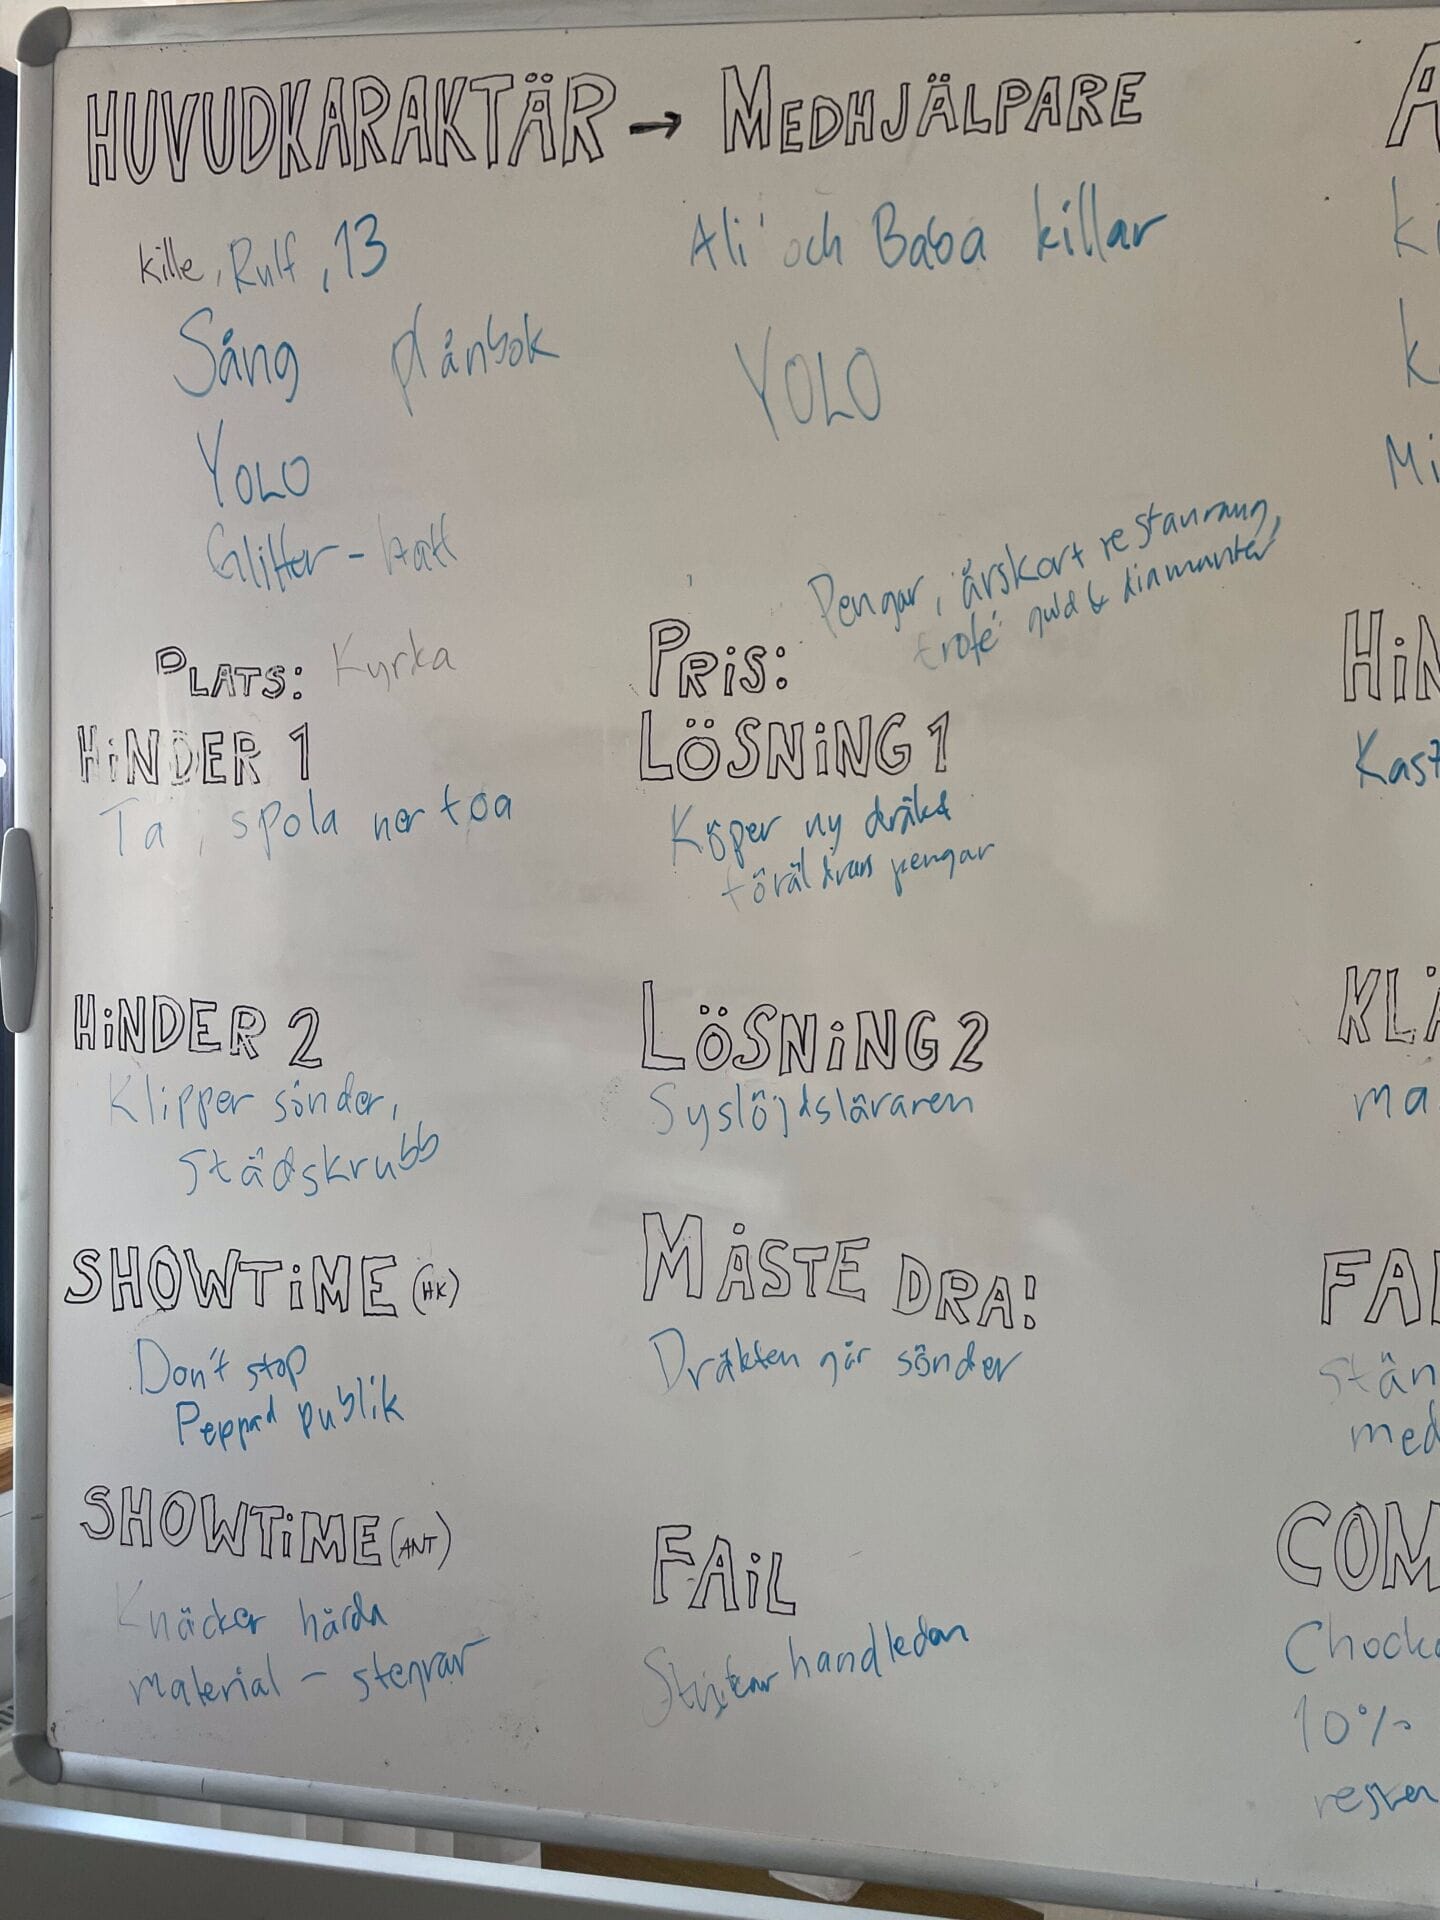 HUVUDKARAKTÄR → MEDHJÄLPARE
kille, Rulf, 13
Sång plånbok
YOLO
Glitter-hatt
Ali och Baba killar
YOLO
PLATS: Kyrka
PRIS: Pengar, årskort restaurang,
trofé guld & diamanter
HINDER 1
Ta, spola ner toa
LÖSNING 1
Köper ny dräkt
föräldrars pengar
HINDER 2
Klipper sönder,
städskrubb
LÖSNING 2
Syslöjdsläraren
SHOWTIME (HK)
Don't stop
Peppad publik
MÅSTE DRA!
Dräkten går sönder
SHOWTIME (ANT)
Knäcker hårda
material -
FAIL
handleden
A
ki
k
Mi
HIN
Kast
KLÄ
ma
FAI
stän
med
COM
Chocka
10%